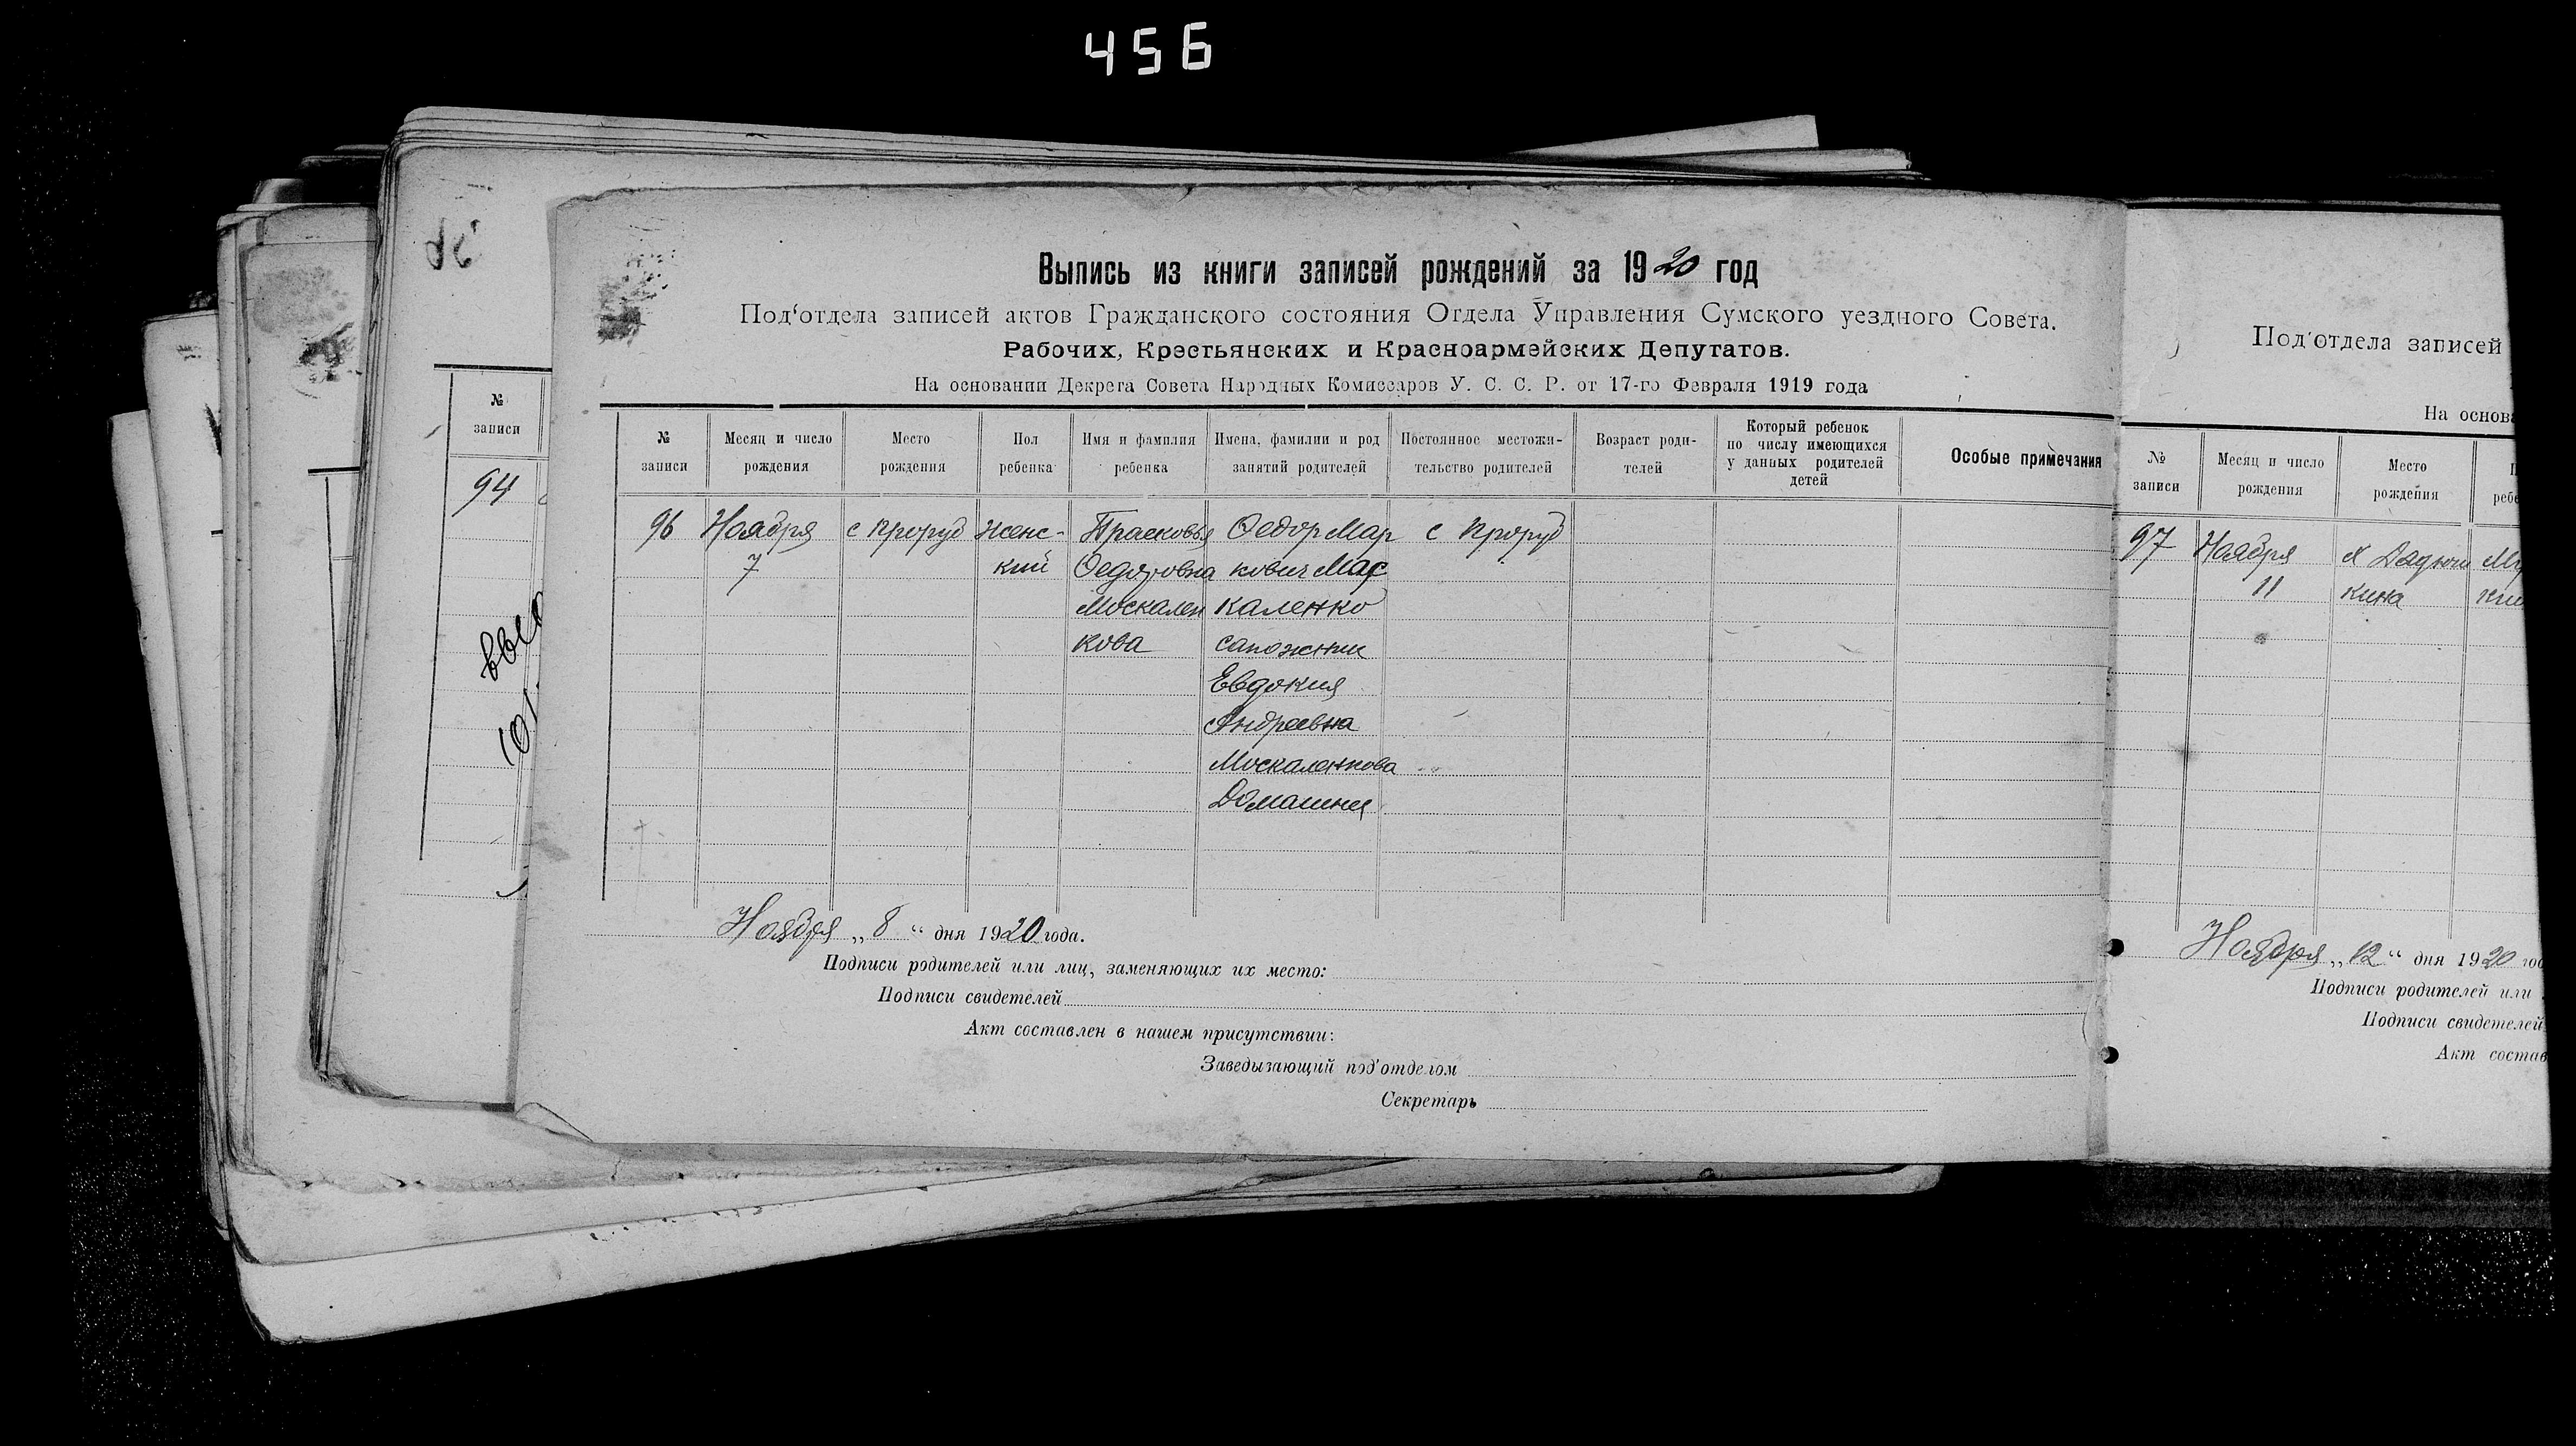 456
Выпись из книги записей рождений за 1920 год
Под‘отдела записей актов Гражданского состояния Отдела Управления Сумского уездного Совета.
Рабочих, Крестьянских и Красноармейских Депутатов.
На основании Декрета Совета Народных Комиссаров У. С. С. Р. от 17-го Февраля 1919 года
№ записи
Месяц и число рождения
Место рождения
Пол ребенка
Имя и фамилия ребенка
Имена, фамилии и род занятий родителей
Постоянное местожи-
тельство родителей
Возраст роди-
телей
Который ребенок
по числу имеющихся
у данных родителей
детей
Особые примечания
96 Ноября с Проруб женс- Прасковья Федор Мар с Проруб
7 кий Федоровна кович Мос
Москален каленко
кова сапожник
Евдокия
Андреевна
Москаленкова
Домашния
Ноября „8“ дня 1920 года.
Подписи родителей или лиц, заменяющих их место:
Подписи свидетелей
Акт составлен в нашем присутствии:
Заведызающий под‘отделом
Секретарь
№
записи
94
Под‘отдела записей
На основа
№ записи
Месяц и число рождения
Место рождения
97 Ноября х
11 кина
Ноября „12“ дня 1920 год
Подписи родителей или
Подписи свидетелей
Акт состав